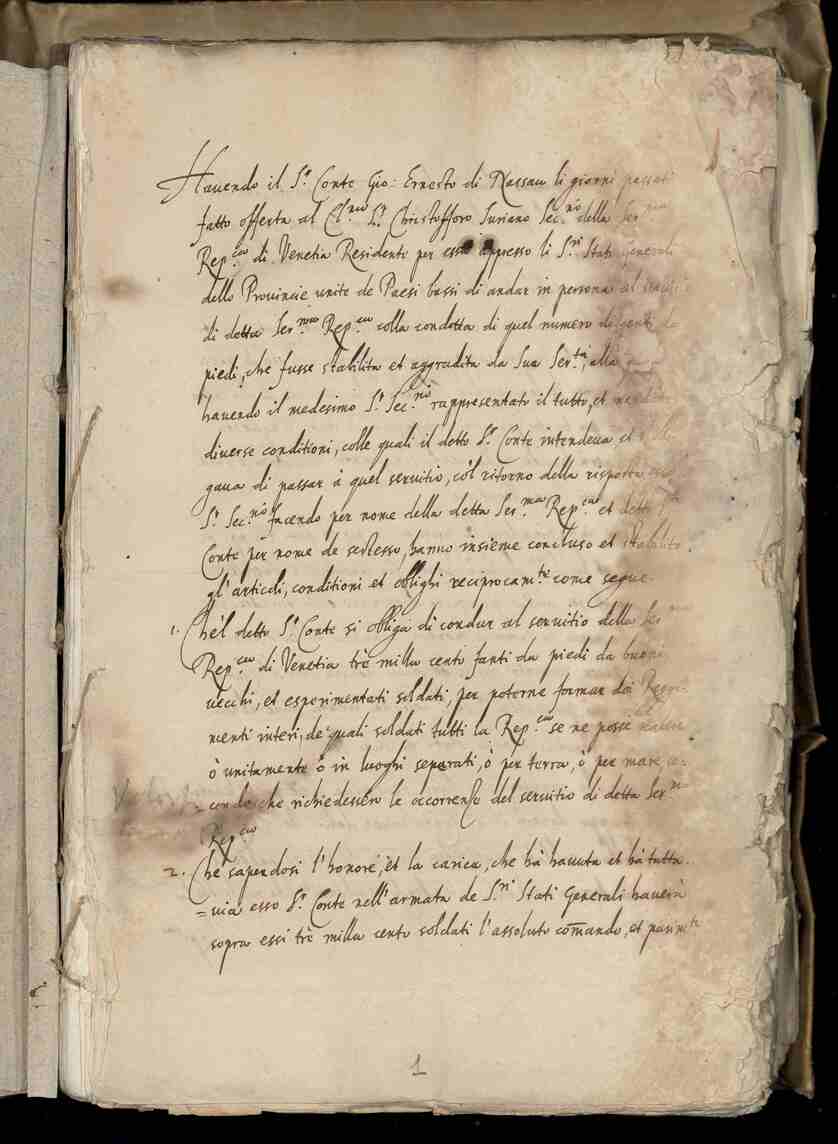 Havendo il S.r Conte Gio: Ernesto di Nassau li giorni passati
fatto offerta al Cl.mo S.r Christofforo Suriano Sec.rio della Ser.ma
Rep.ca di Venetia Residente per essa appresso li S.ri Stati Generali
delle Provincie unite de Paesi bassi di andar in persona al
di detta Ser.ma Rep.ca colla condotta di quel numero di genti da
piedi, che fusse stabilita et aggradita da Sua Ser.tà, alla
havendo il medesimo S.r Sec.rio rappresentato il tutto, et
diverse conditioni, colle quali il detto S.r Conte intendeva et
gava di passar à quel servitio, co'l ritorno della risposta
S.r Sec.rio facendo per nome della detta Ser.ma Rep.ca et detto S.r
Conte per nome de sestesso, hanno insieme concluso et stabilito
gl'articoli, conditioni et oblighi reciprocam.te come segue.
1. Che'l detto S.r Conte si obliga di condur al servitio della Ser.ma
Rep.ca di Venetia trè milla cento fanti da piedi da buoni
vecchi, et esperimentati soldati, per poterne formar doi Reggi-
menti intieri, de quali soldati tutti la Rep.ca se ne posse valere
ò unitamente ò in luoghi separati, ò per terra, ò per mare, se-
=condo che richiedessero le occorrenze del servitio di detta Ser.ma
Rep.ca
2. Che sapendosi l'honore, et la carica, che hà havuta et hà tutta
=via esso S.r Conte nell'armata de S.ri Stati Generali haverà
sopra essi trè milla cento soldati l'assoluto comando, et parim.te
1